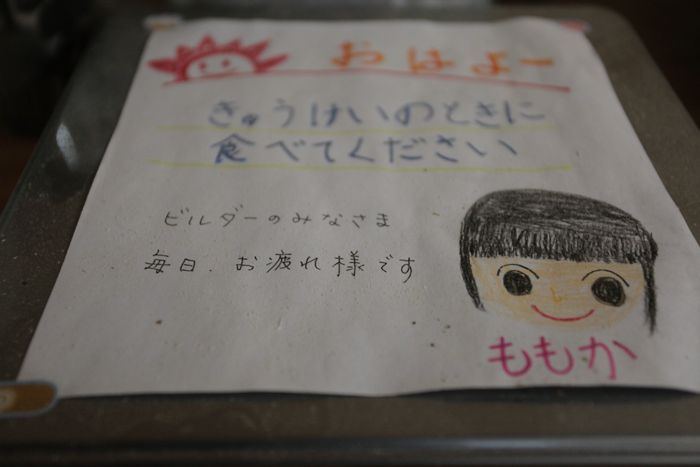 おはよー
きゅうけいのときに
食べてください
ビルダーのみなさま
毎日、お疲れ様です
ももか